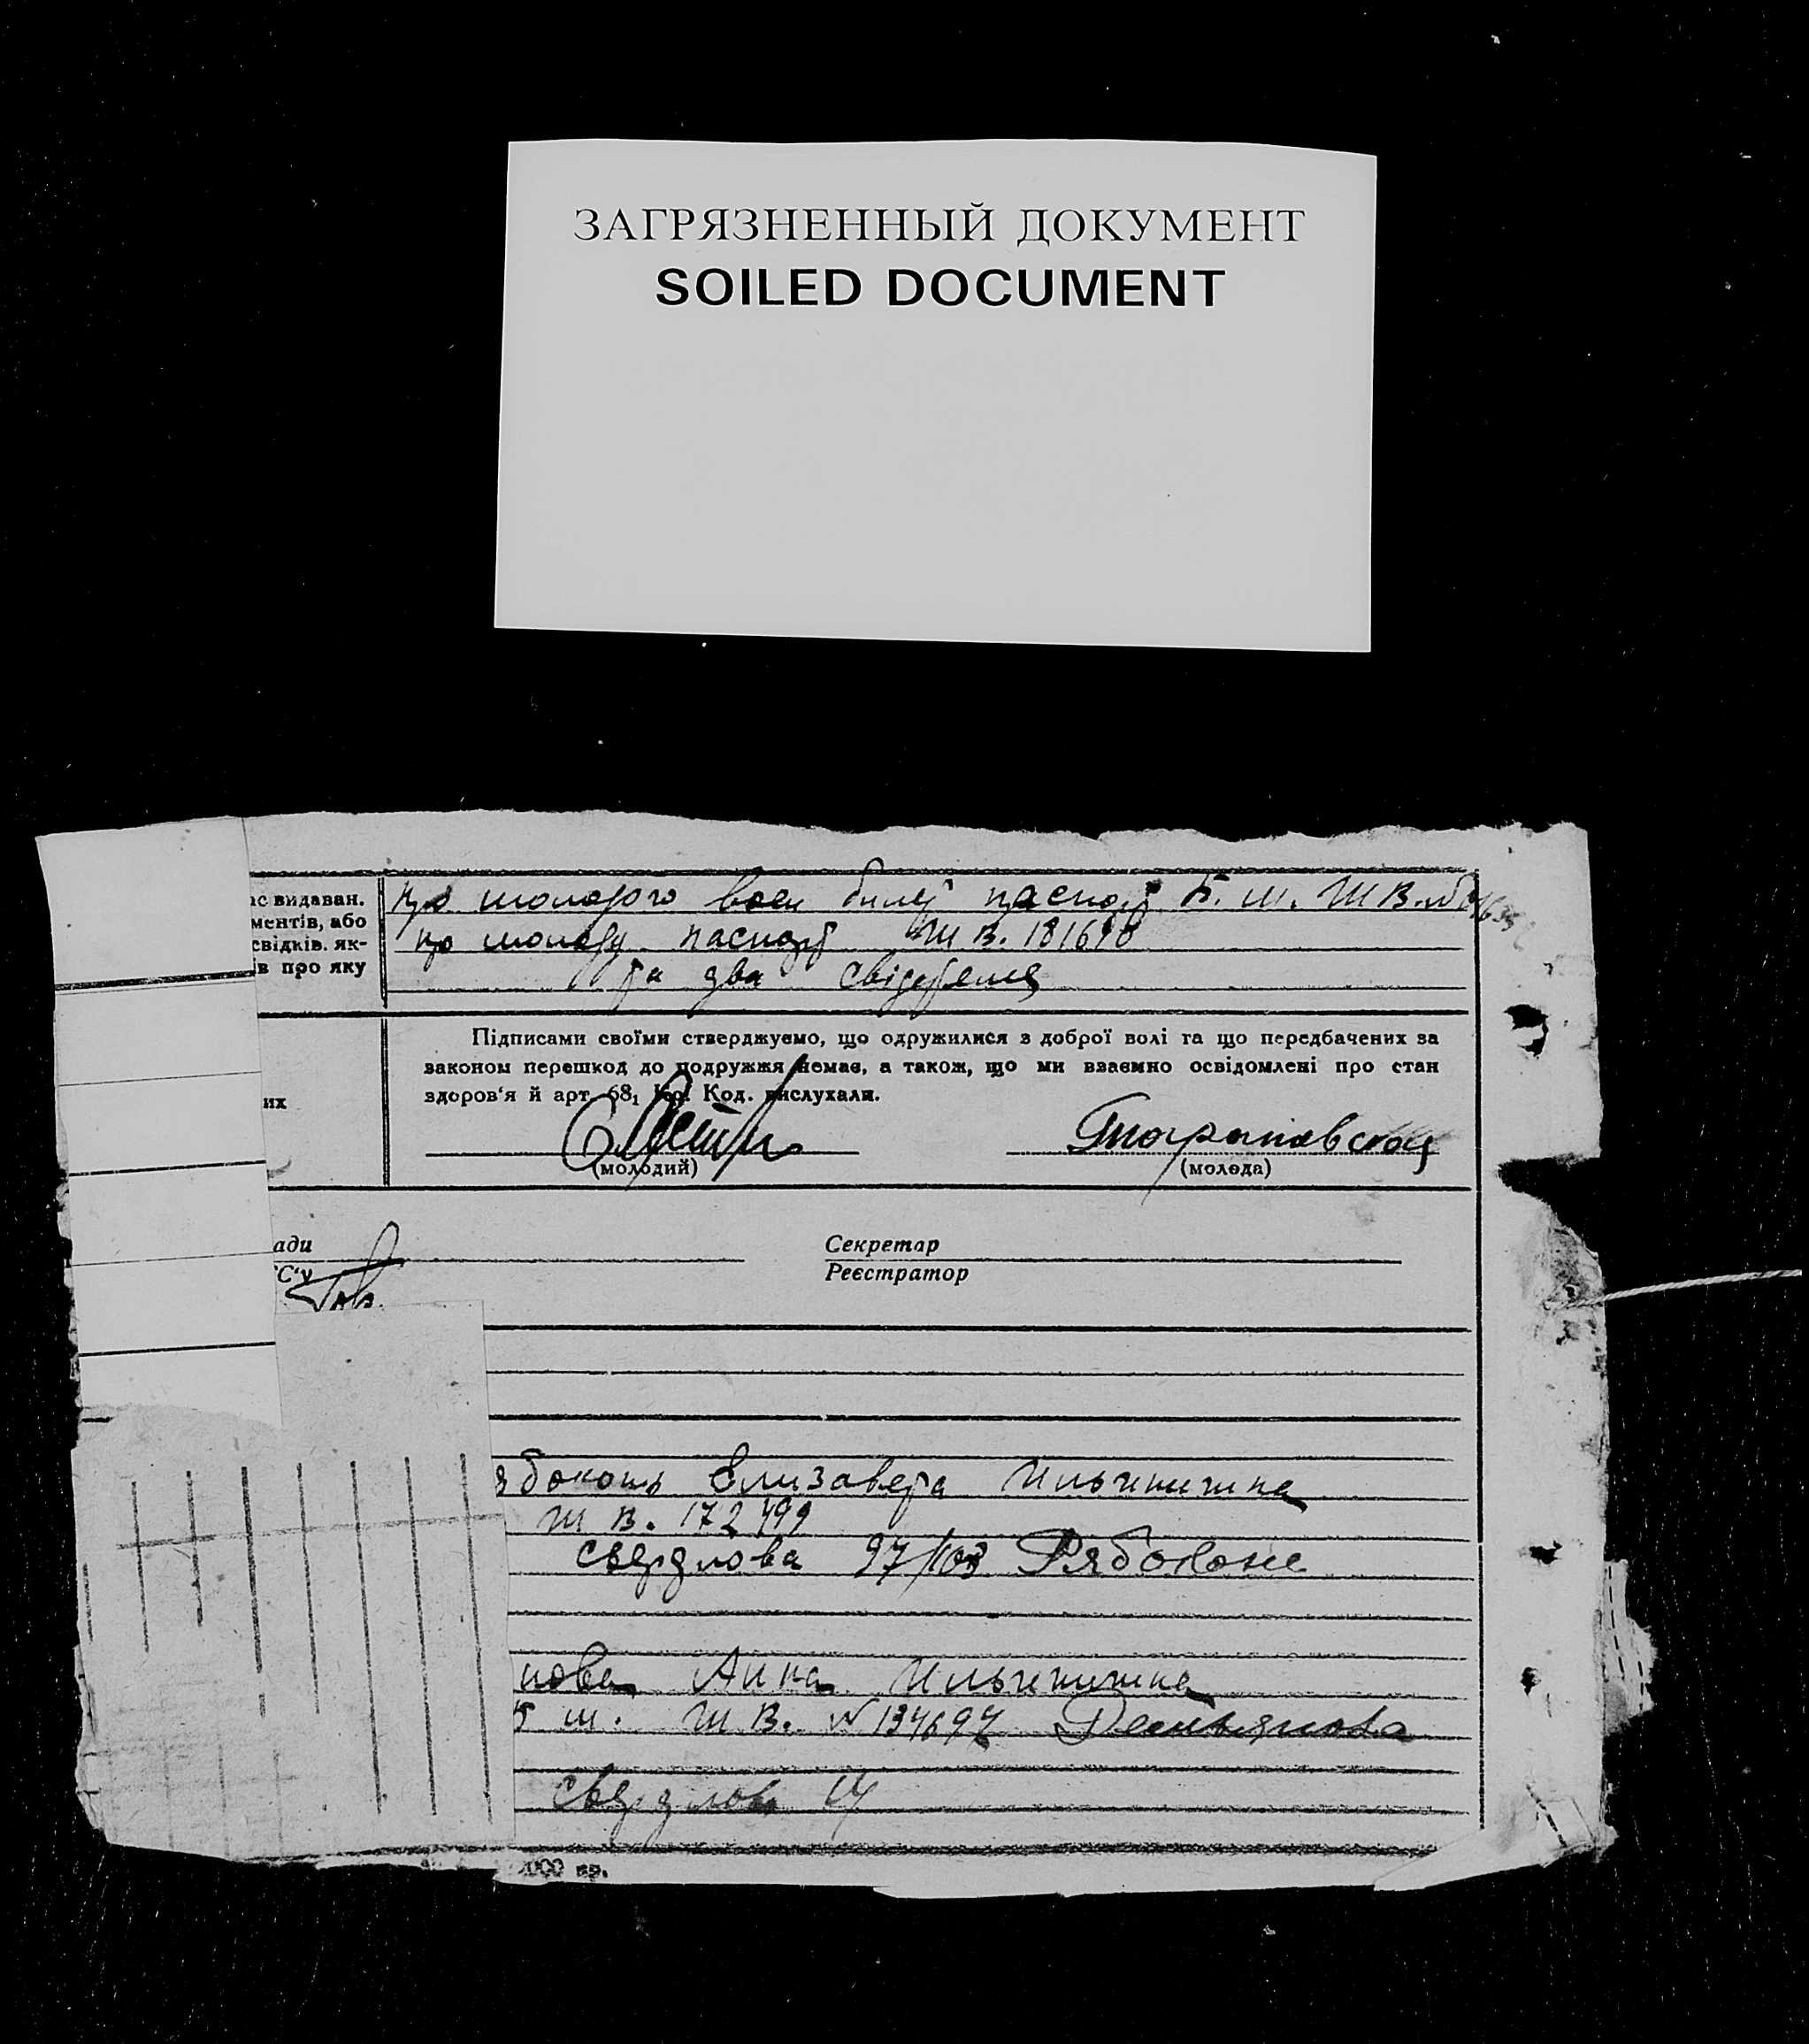 ЗАГРЯЗНЕННЫЙ ДОКУМЕНТ
SOILED DOCUMENT
ас видаван.
ментів, або
свідків. як-
ів про яку
про молодого воен билет паспорт Б. ш. Ш В. №
про молоду паспорт Ш В. 181698
та два свідетеля
их
Підписами своїми стверджуємо, що одружилися з доброї волі та що передбачених за
законом перешкод до подружжя немає, а також, що ми взаємно освідомлені про стан
здоров'я й арт. 68₁ Кр. Код. вислухали.
Тарановская
(молодий) (молода)
ади
Секретар
С"у
Реєстратор
ябоконь Елизавета Ильинишна
Ш В. 172499
Свердлова 97/103 Рябоконе
нова Анна Ильинишна
Б ш. Ш В. № 134697 Демьянова
Свердлова
000 пр.